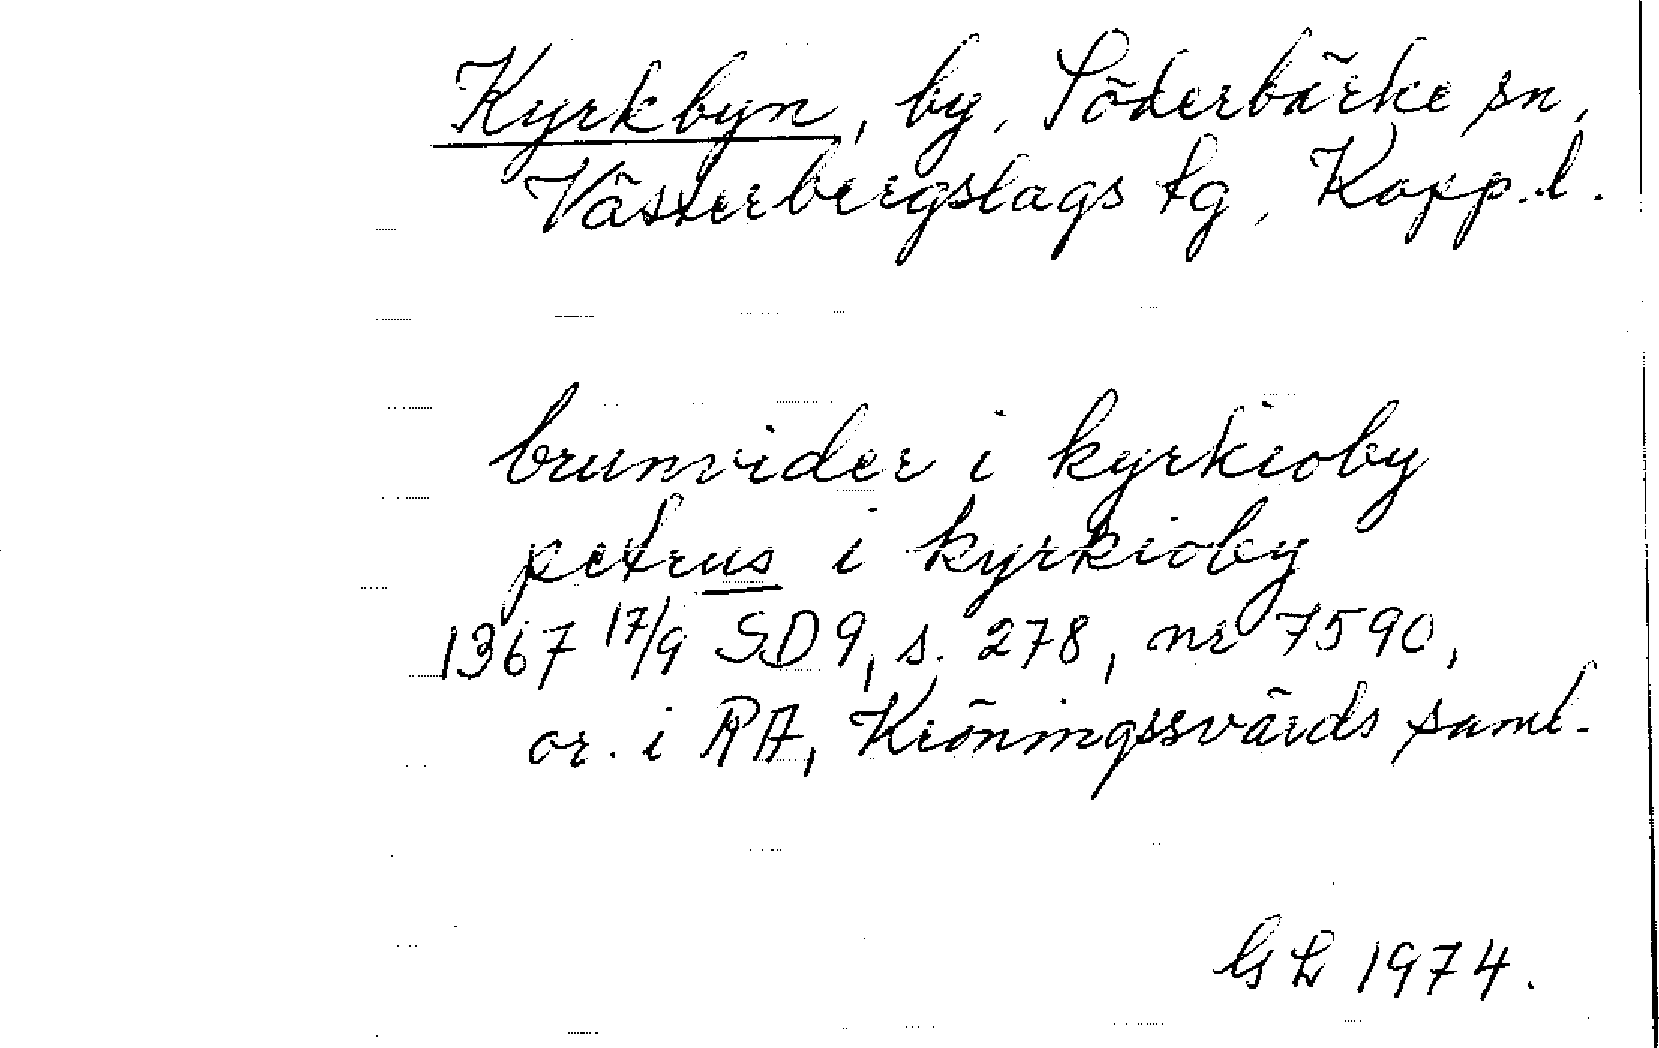 Kyrkbyn, by, Söderbärke sn,
Västerbergslags tg, Kopp.l.
brunvider i kyrkioby
petrus i kyrkioby
1367 17/9 SD 9, s. 278, nr 7590,
or. i RA, Kröningssvärds saml.
GL 1974.